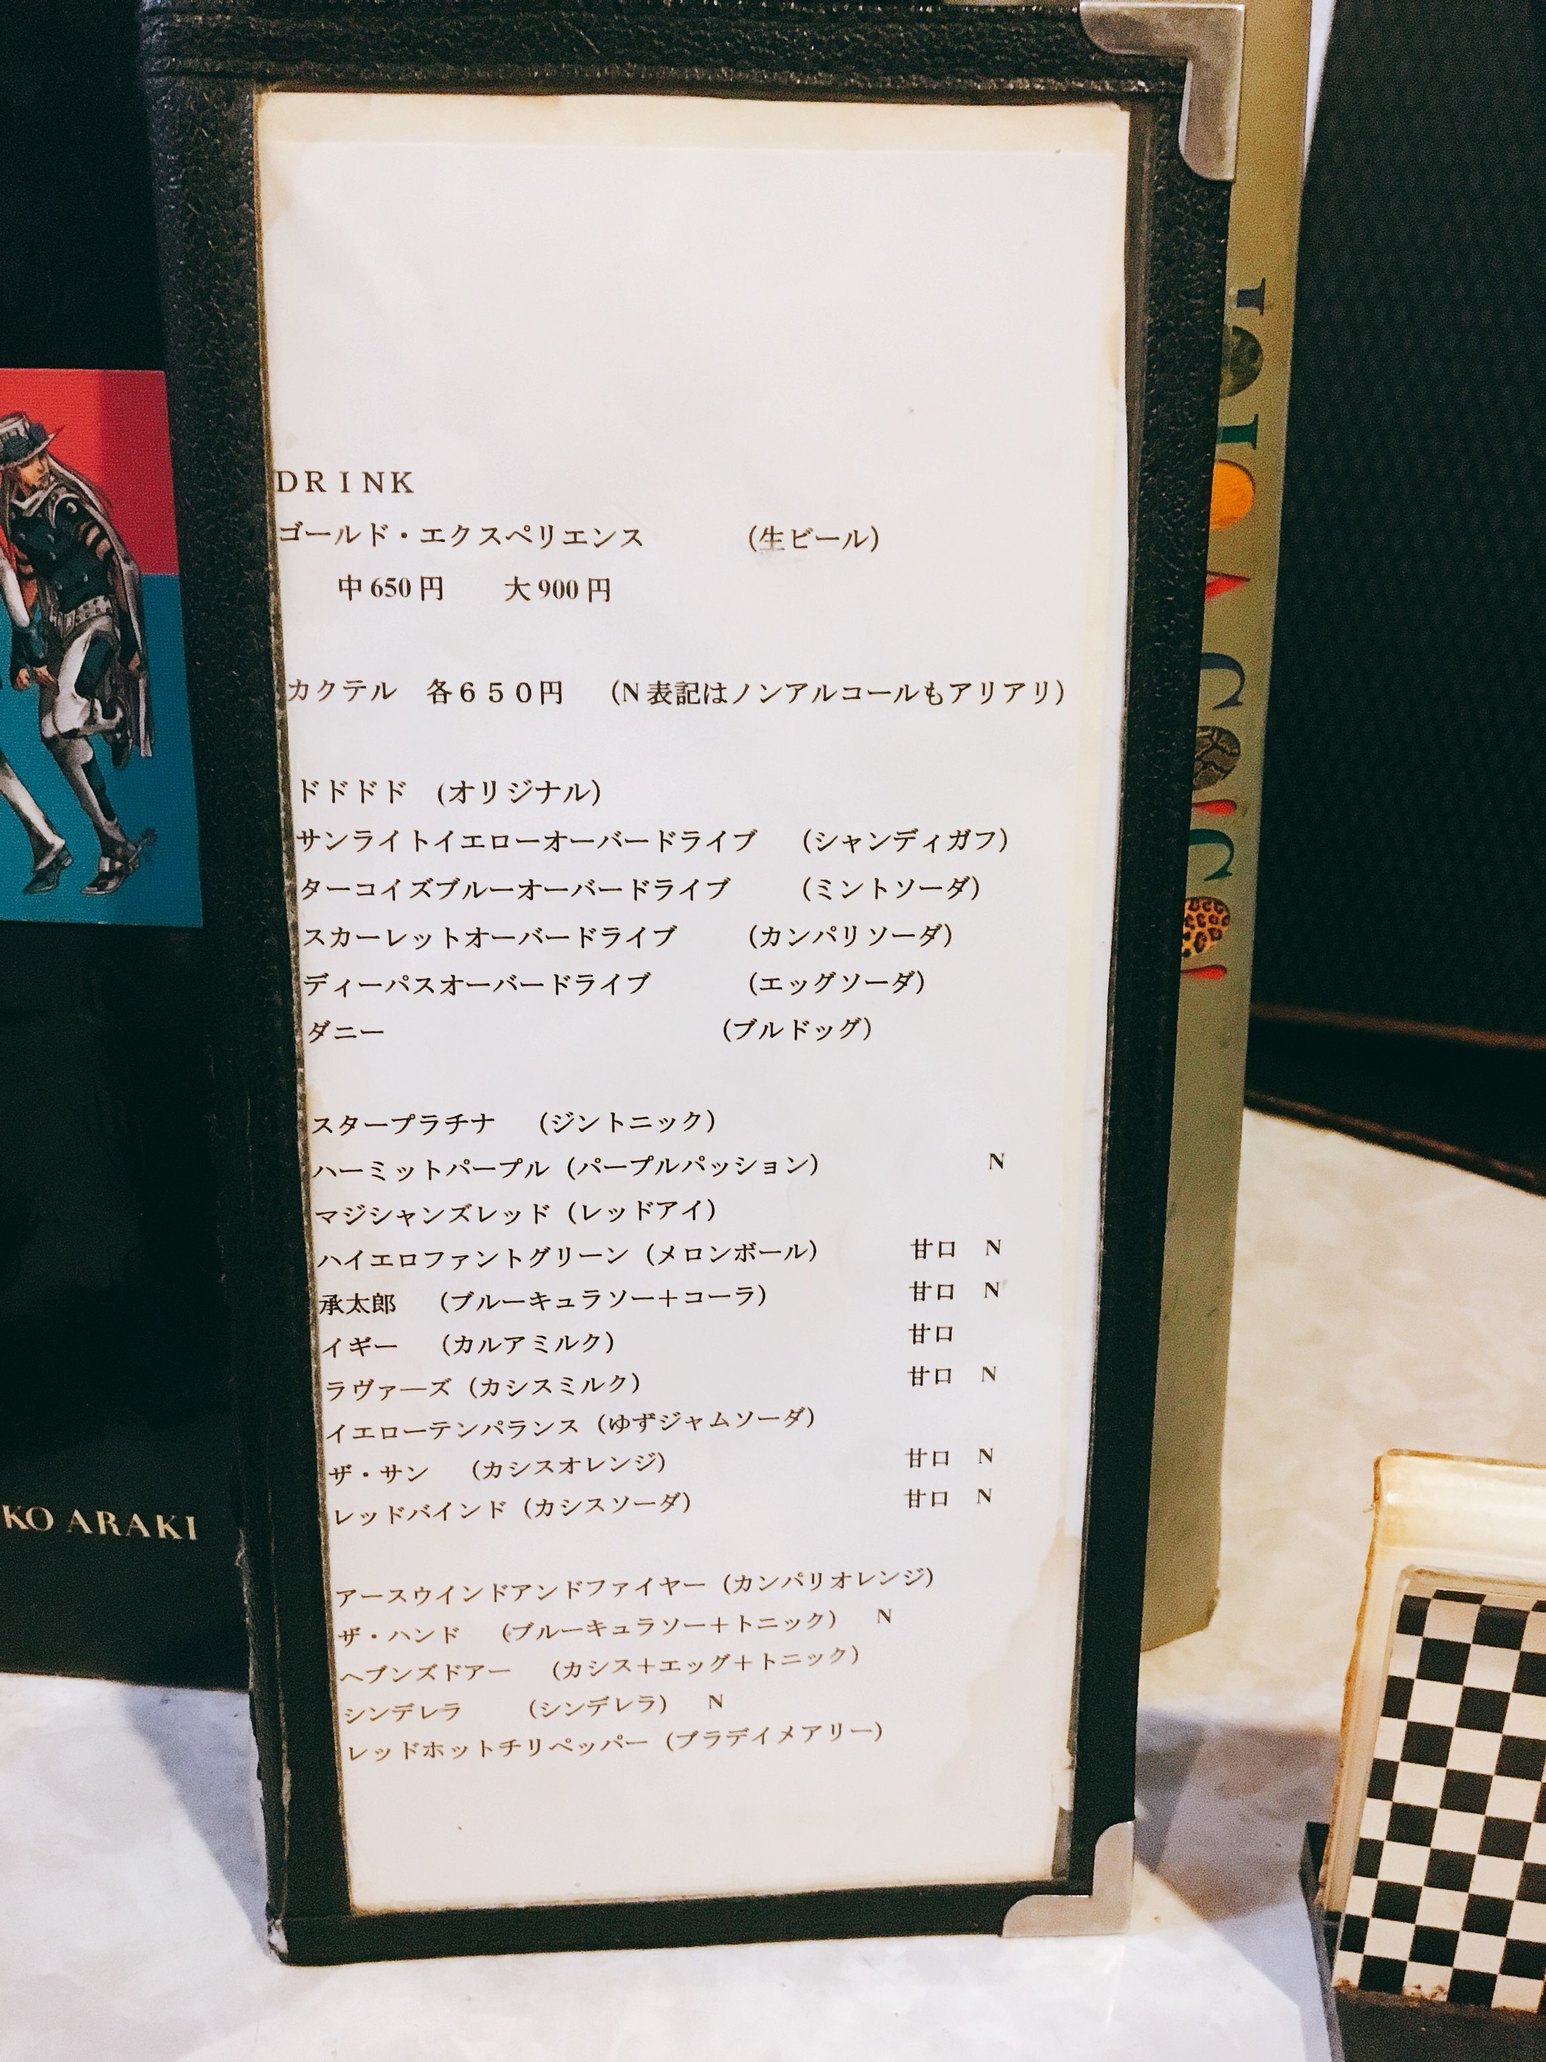 DRINK
ゴールド・エクスペリエンス （生ビール）
中650円 大900円
カクテル 各６５０円 （N表記はノンアルコールもアリアリ）
ドドドド （オリジナル）
サンライトイエローオーバードライブ （シャンディガフ）
ターコイズブルーオーバードライブ （ミントソーダ）
スカーレットオーバードライブ （カンパリソーダ）
ディーパスオーバードライブ （エッグソーダ）
ダニー （ブルドッグ）
スタープラチナ （ジントニック）
ハーミットパープル（パープルパッション） N
マジシャンズレッド（レッドアイ）
ハイエロファントグリーン（メロンボール） 甘口 N
承太郎 （ブルーキュラソー＋コーラ） 甘口 N
イギー （カルアミルク） 甘口
ラヴァーズ（カシスミルク） 甘口 N
イエローテンパランス（ゆずジャムソーダ）
ザ・サン （カシスオレンジ） 甘口 N
レッドバインド（カシスソーダ） 甘口 N
アースウインドアンドファイヤー（カンパリオレンジ）
ザ・ハンド （ブルーキュラソー＋トニック） N
ヘブンズドアー （カシス＋エッグ＋トニック）
シンデレラ （シンデレラ） N
レッドホットチリペッパー（ブラデイメアリー）
KO ARAKI
JOJO A GO!GO!